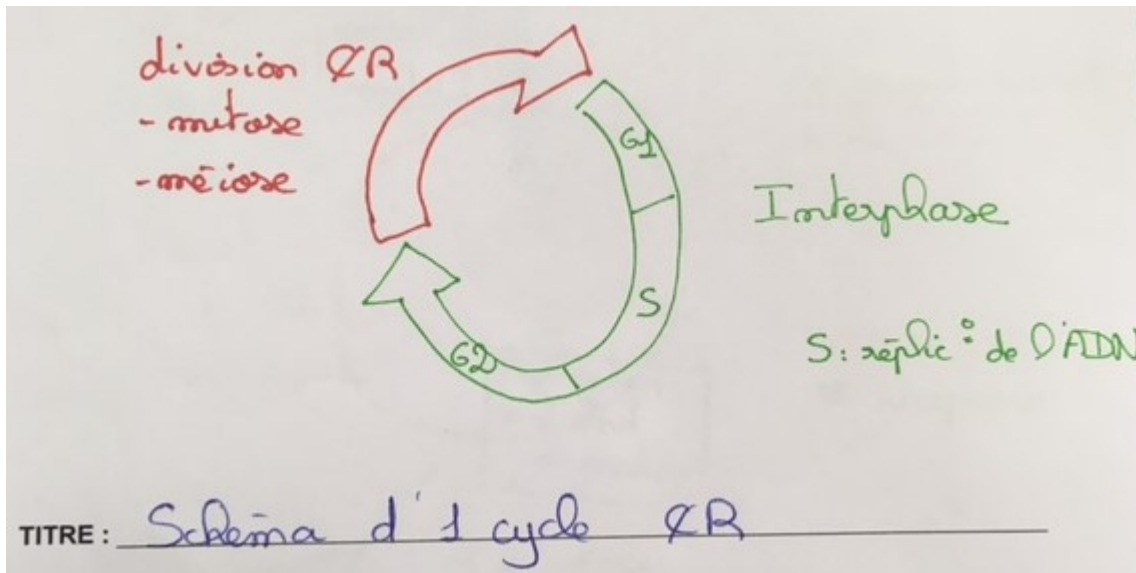 division ¢R
- mitose
- méiose
G1
Interphase
S
S: réplic° de l'ADN
G2
TITRE : Schéma d'1 cycle ¢R